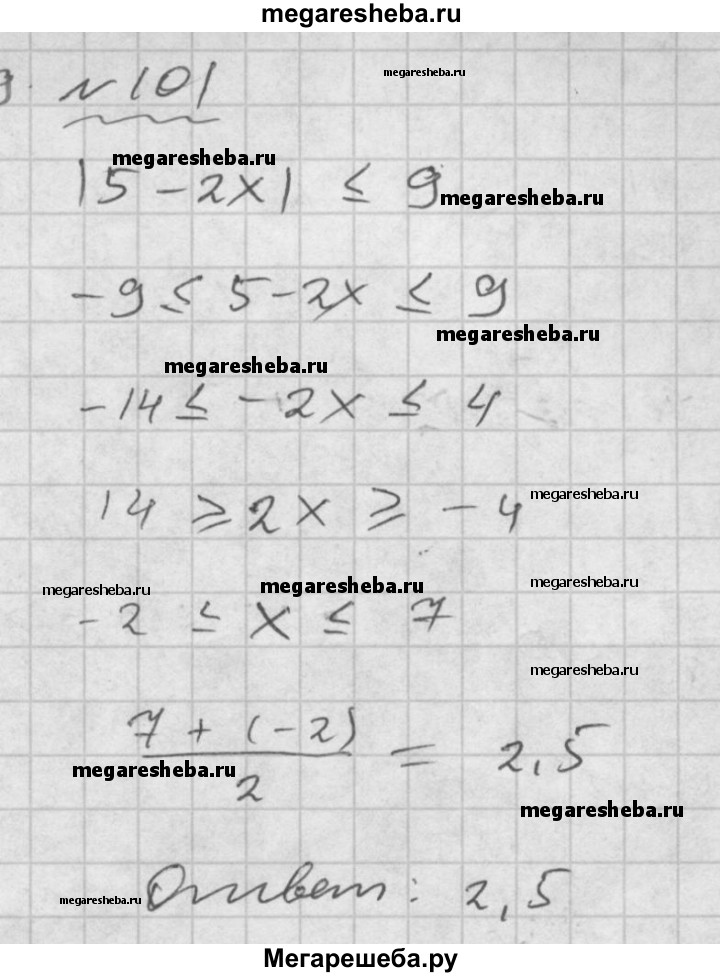 megaresheba.ru
№101
megaresheba.ru
megaresheba.ru
|5-2x| ≤ 9
megaresheba.ru
-9 ≤ 5-2x ≤ 9
megaresheba.ru
megaresheba.ru
-14 ≤ -2x ≤ 4
megaresheba.ru
14 ≥ 2x ≥ -4
megaresheba.ru
megaresheba.ru
megaresheba.ru
-2 ≤ x ≤ 7
megaresheba.ru
7+(-2)
/2 = 2,5
megaresheba.ru
megaresheba.ru
Ответ: 2,5
megaresheba.ru
Мегарешеба.ру